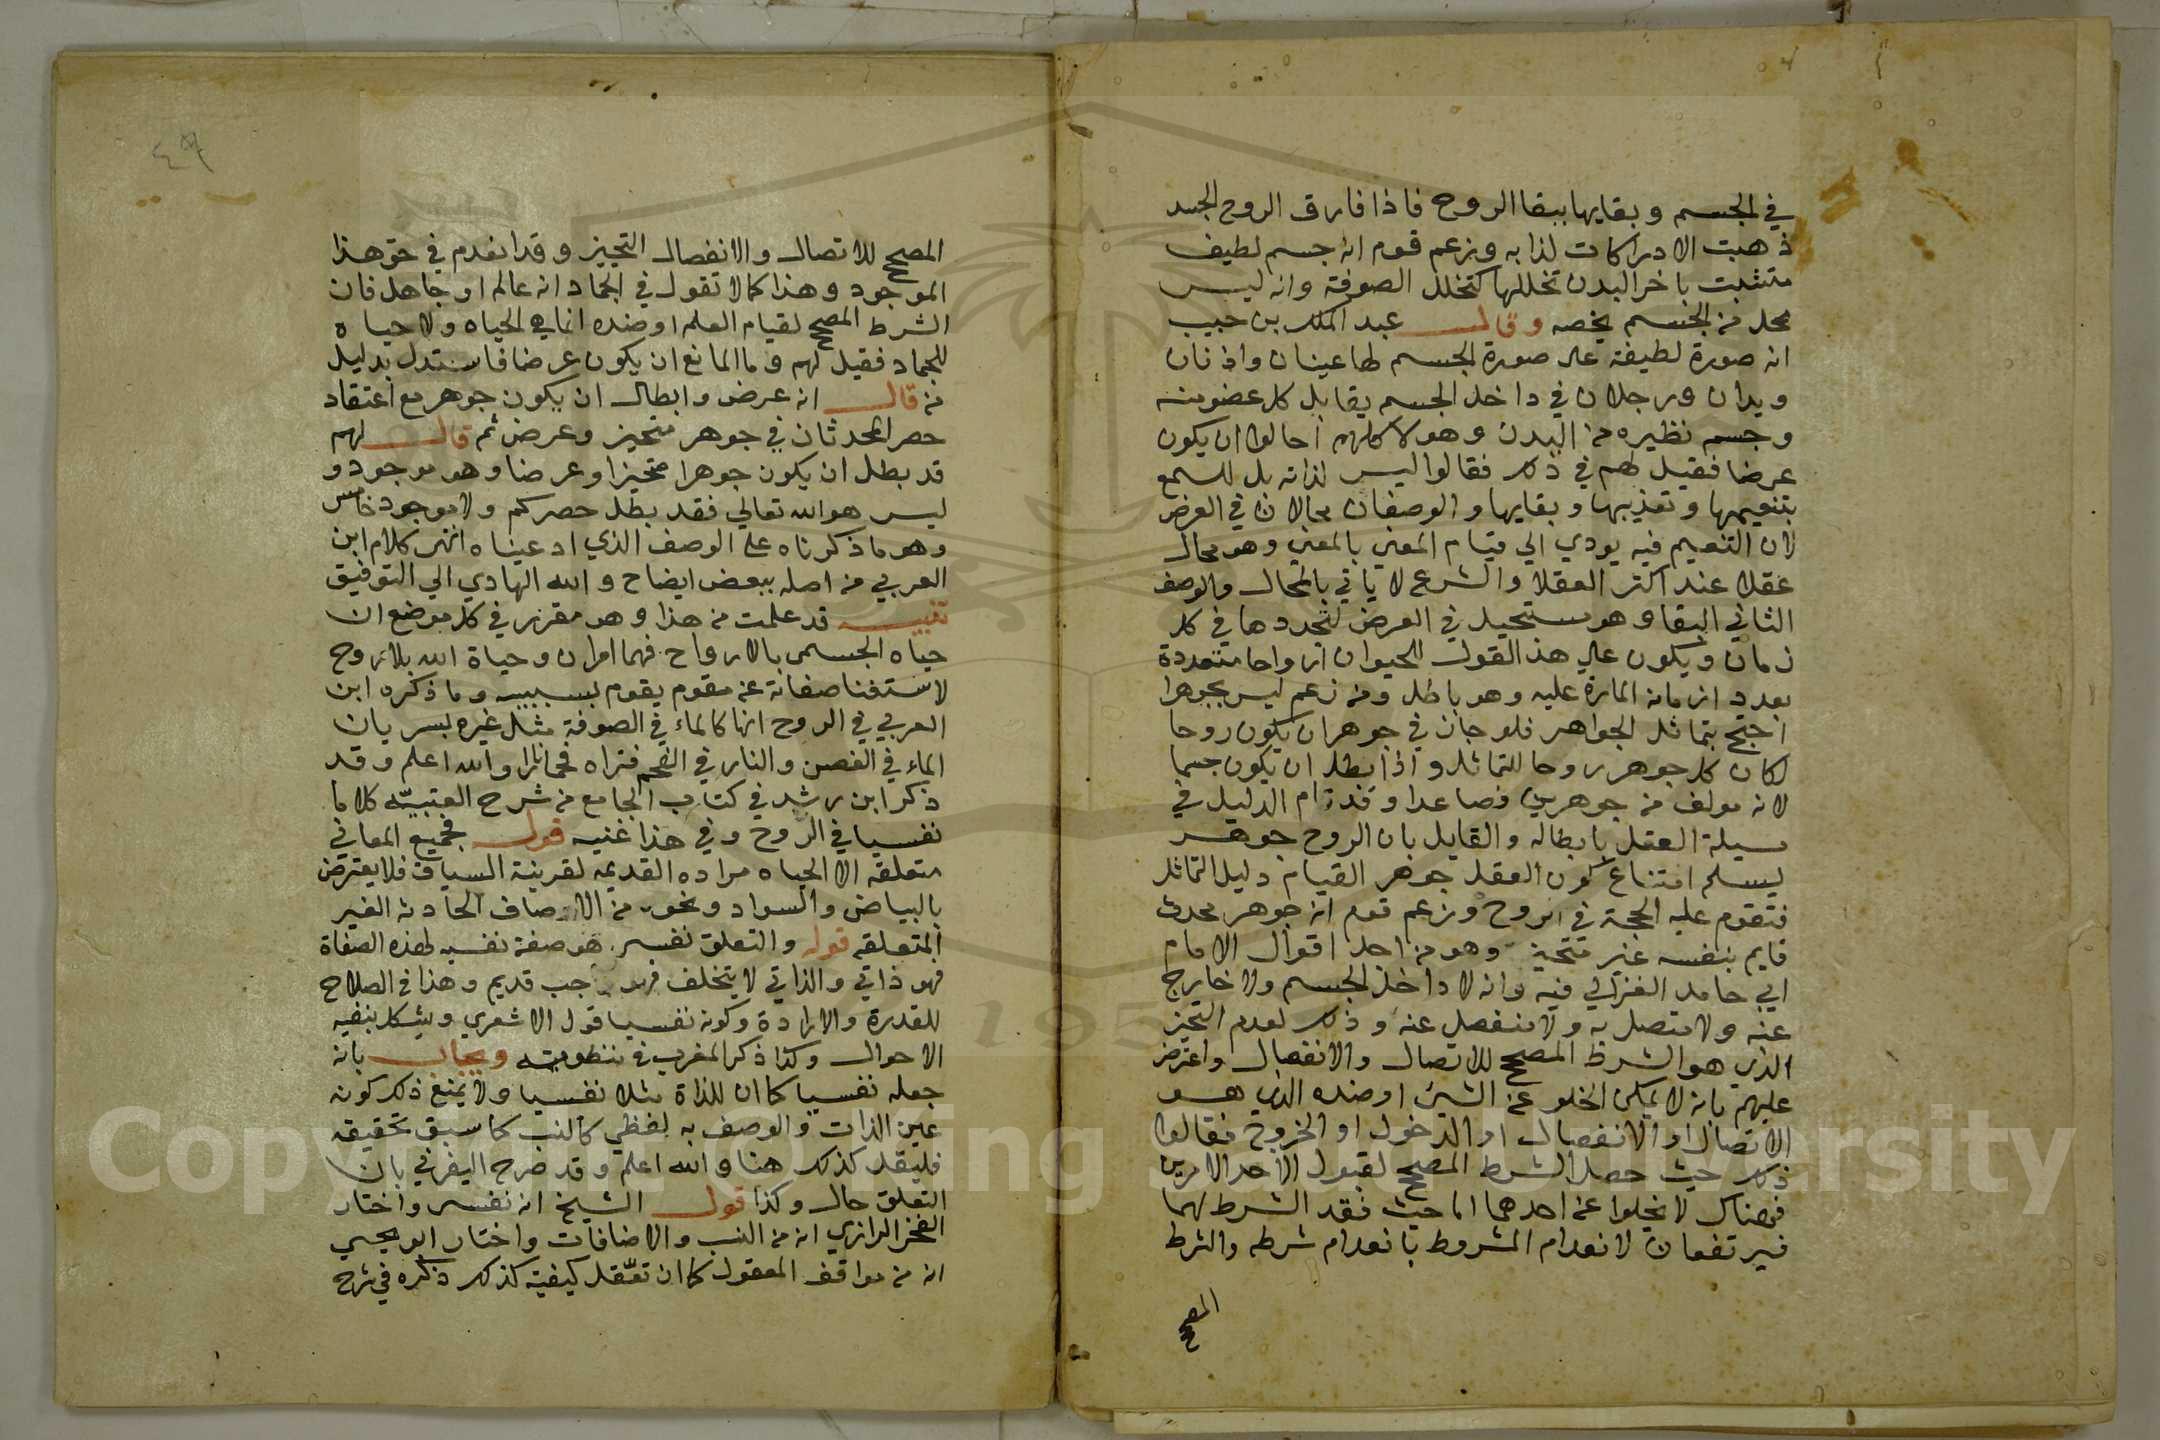 في الجسم وبقايها ببقا الروح فاذا فارق الروح الجسد
ذهبت الادراكات لذا به وزعم قوم انه جسم لطيف
متشبت باخر البدن تخللها كتخلل الصوفة وانه ليس
محل من الجسم يخصه وقال عبد الملك بن حبيب
انه صورة لطيفة على صورة الجسم لها عينان واذنان
ويدان ورجلان في داخل الجسم يقابل كل عضو منه
وجسم نظيره من البدن وهولا كلهم احالوا ان يكون
عرضا فقيل لهم في ذلك فقالوا ليس لذاته بل للسمع
بتنعيمها وتعذيبها وبقايها والوصفان محالان في العرض
لان التنعيم فيه يودي الي قيام المعني بالمعني وهو محال
عقلا عند اكثر العقلا والشرع لا ياتي بالمحال والوصف
الثاني البقا وهو مستحيل في العرض لتجددها في كل
زمان ويكون علي هذا القول للحيوان ارواحا متعددة
بعدد ازمانه المارة عليه وهو باطل ومن زعم ليس بجوهرا
احتج بتماثل الجواهر فلو جاز في جوهر ان يكون روحا
لكان كل جوهر روحا للتماثل واذا بطل ان يكون جسما
لانه مولف من جوهرين فصاعدا وقد قام الدليل في
مسيلة العقل بابطاله والقايل بان الروح جوهر
يسلم امتناع كون العقل جوهر القيام دليل التماثل
فتقوم عليه الحجة في الروح وزعم قوم انه جوهر محدث
قايم بنفسه غير متحيز وهو من احد اقوال الامام
ابي حامد الغزالي فيه وانه لا داخل الجسم ولا خارج
عنه ولا متصل به ولا منفصل عنه وذلك لعدم التحيز
الذي هو الشرط المصحح للاتصال والانفصال واعترض
عليهم بانه لا يمكن الخلو عن الشيئ او ضده الذي هو
الاتصال او الانفصال او الدخول او الخروج فقالوا
ذلك حيث حصل الشرط المصحح لقبول الاحد الامرين
فهناك لا يخلوا عن احدهما اما حيث فقد الشرط لهما
فيرتفعان لانعدام المشروط بانعدام شرطه والشرط
المصحح
٤٩
المصحح للاتصال والانفصال التحيز وقد انعدم في حق هذا
الموجود وهذا كما لا تقول في الجماد انه عالم او جاهل فان
الشرط المصحح لقيام العلم او ضده انما هي الحياه ولا حياه
للجماد فقيل لهم وما المانع ان يكون عرضا فاستدل بدليل
من قال انه عرض وابطال ان يكون جوهر مع اعتقاد
حصر المحدثان في جوهر متحيز وعرض ثم قال لهم
قد بطل ان يكون جوهرا متحيزا وعرضا وهو موجود و
ليس هو الله تعالي فقد بطل حصركم ولا موجود خامس
وهو ما ذكرناه علي الوصف الذي ادعيناه انتهى كلام ابن
العربي من اصله ببعض ايضاح والله الهادي الي التوفيق
تنبيه قد علمت من هذا وهو مقرر في كل موضع ان
حياه الجسمى بالارواح فهما امران وحياة الله بلا روح
لاستغنا صفاته عن مقوم يقوم بسببه وما ذكره ابن
العربي في الروح انها كالماء في الصوفة مثل غيره بسريان
الماء في الغصن والنار في الفحم فتراه فحما نارا والله اعلم وقد
ذكر ابن رشد في كتاب الجامع من شرح العتبيّه كلاما
نفسيا في الروح وفي هذا غنيه قوله فجميع المعاني
متعلقه الا الحياه مراده القديمه لقرينة السياق فلا يعترض
بالبياض والسواد ونحوه من الاوصاف الحادثه الغير
المتعلقه قوله والتعلق نفسي هو صفة نفسيه لهذه الصفاة
فهو ذاتي والذاتي لا يتخلف فهو واجب قديم وهذا في الصلاح
للقدرة والارادة وكونه نفسيا قول الاشعري ويشكل بنفيه
الاحوال وكذا ذكر المغرب في منظومته ويجاب بانه
جعله نفسيا كما ان للذاة مثلا نفسيا ولا يمنع ذلك كونه
عين الذات والوصف به لفظي كالنسب كما سبق تحقيقه
فليقل كذلك هنا والله اعلم وقد صرح اليفرني بان
التعلق حال وكذا قول الشيخ انه نفسي واختار
الفخر الرازي انه من النسب والاضافات واختار ابو يحيى
انه من مواقف المعقول كما ان تعقل كيفيته كذلك ذكره في شرح